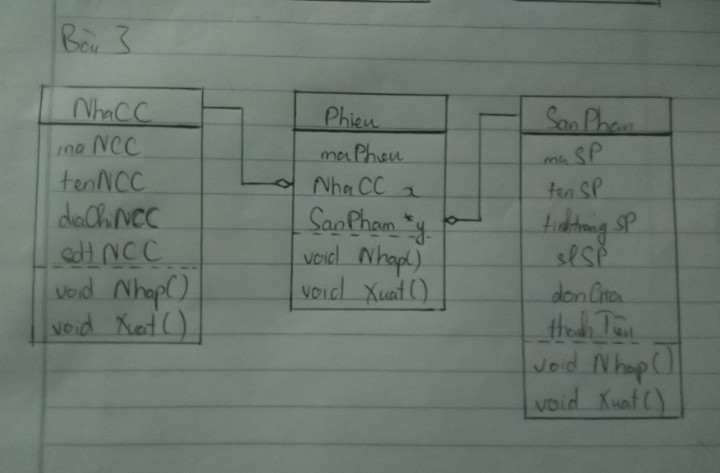 Bài 3
NhaCC
maNCC
tenNCC
diaChiNCC
sdtNCC
void Nhap()
void Xuat()
Phieu
maPhieu
NhaCC x
SanPham *y
void Nhap()
void Xuat()
SanPham
maSP
tenSP
tinhtrangSP
slSP
donGia
thanhTien
void Nhap()
void Xuat()